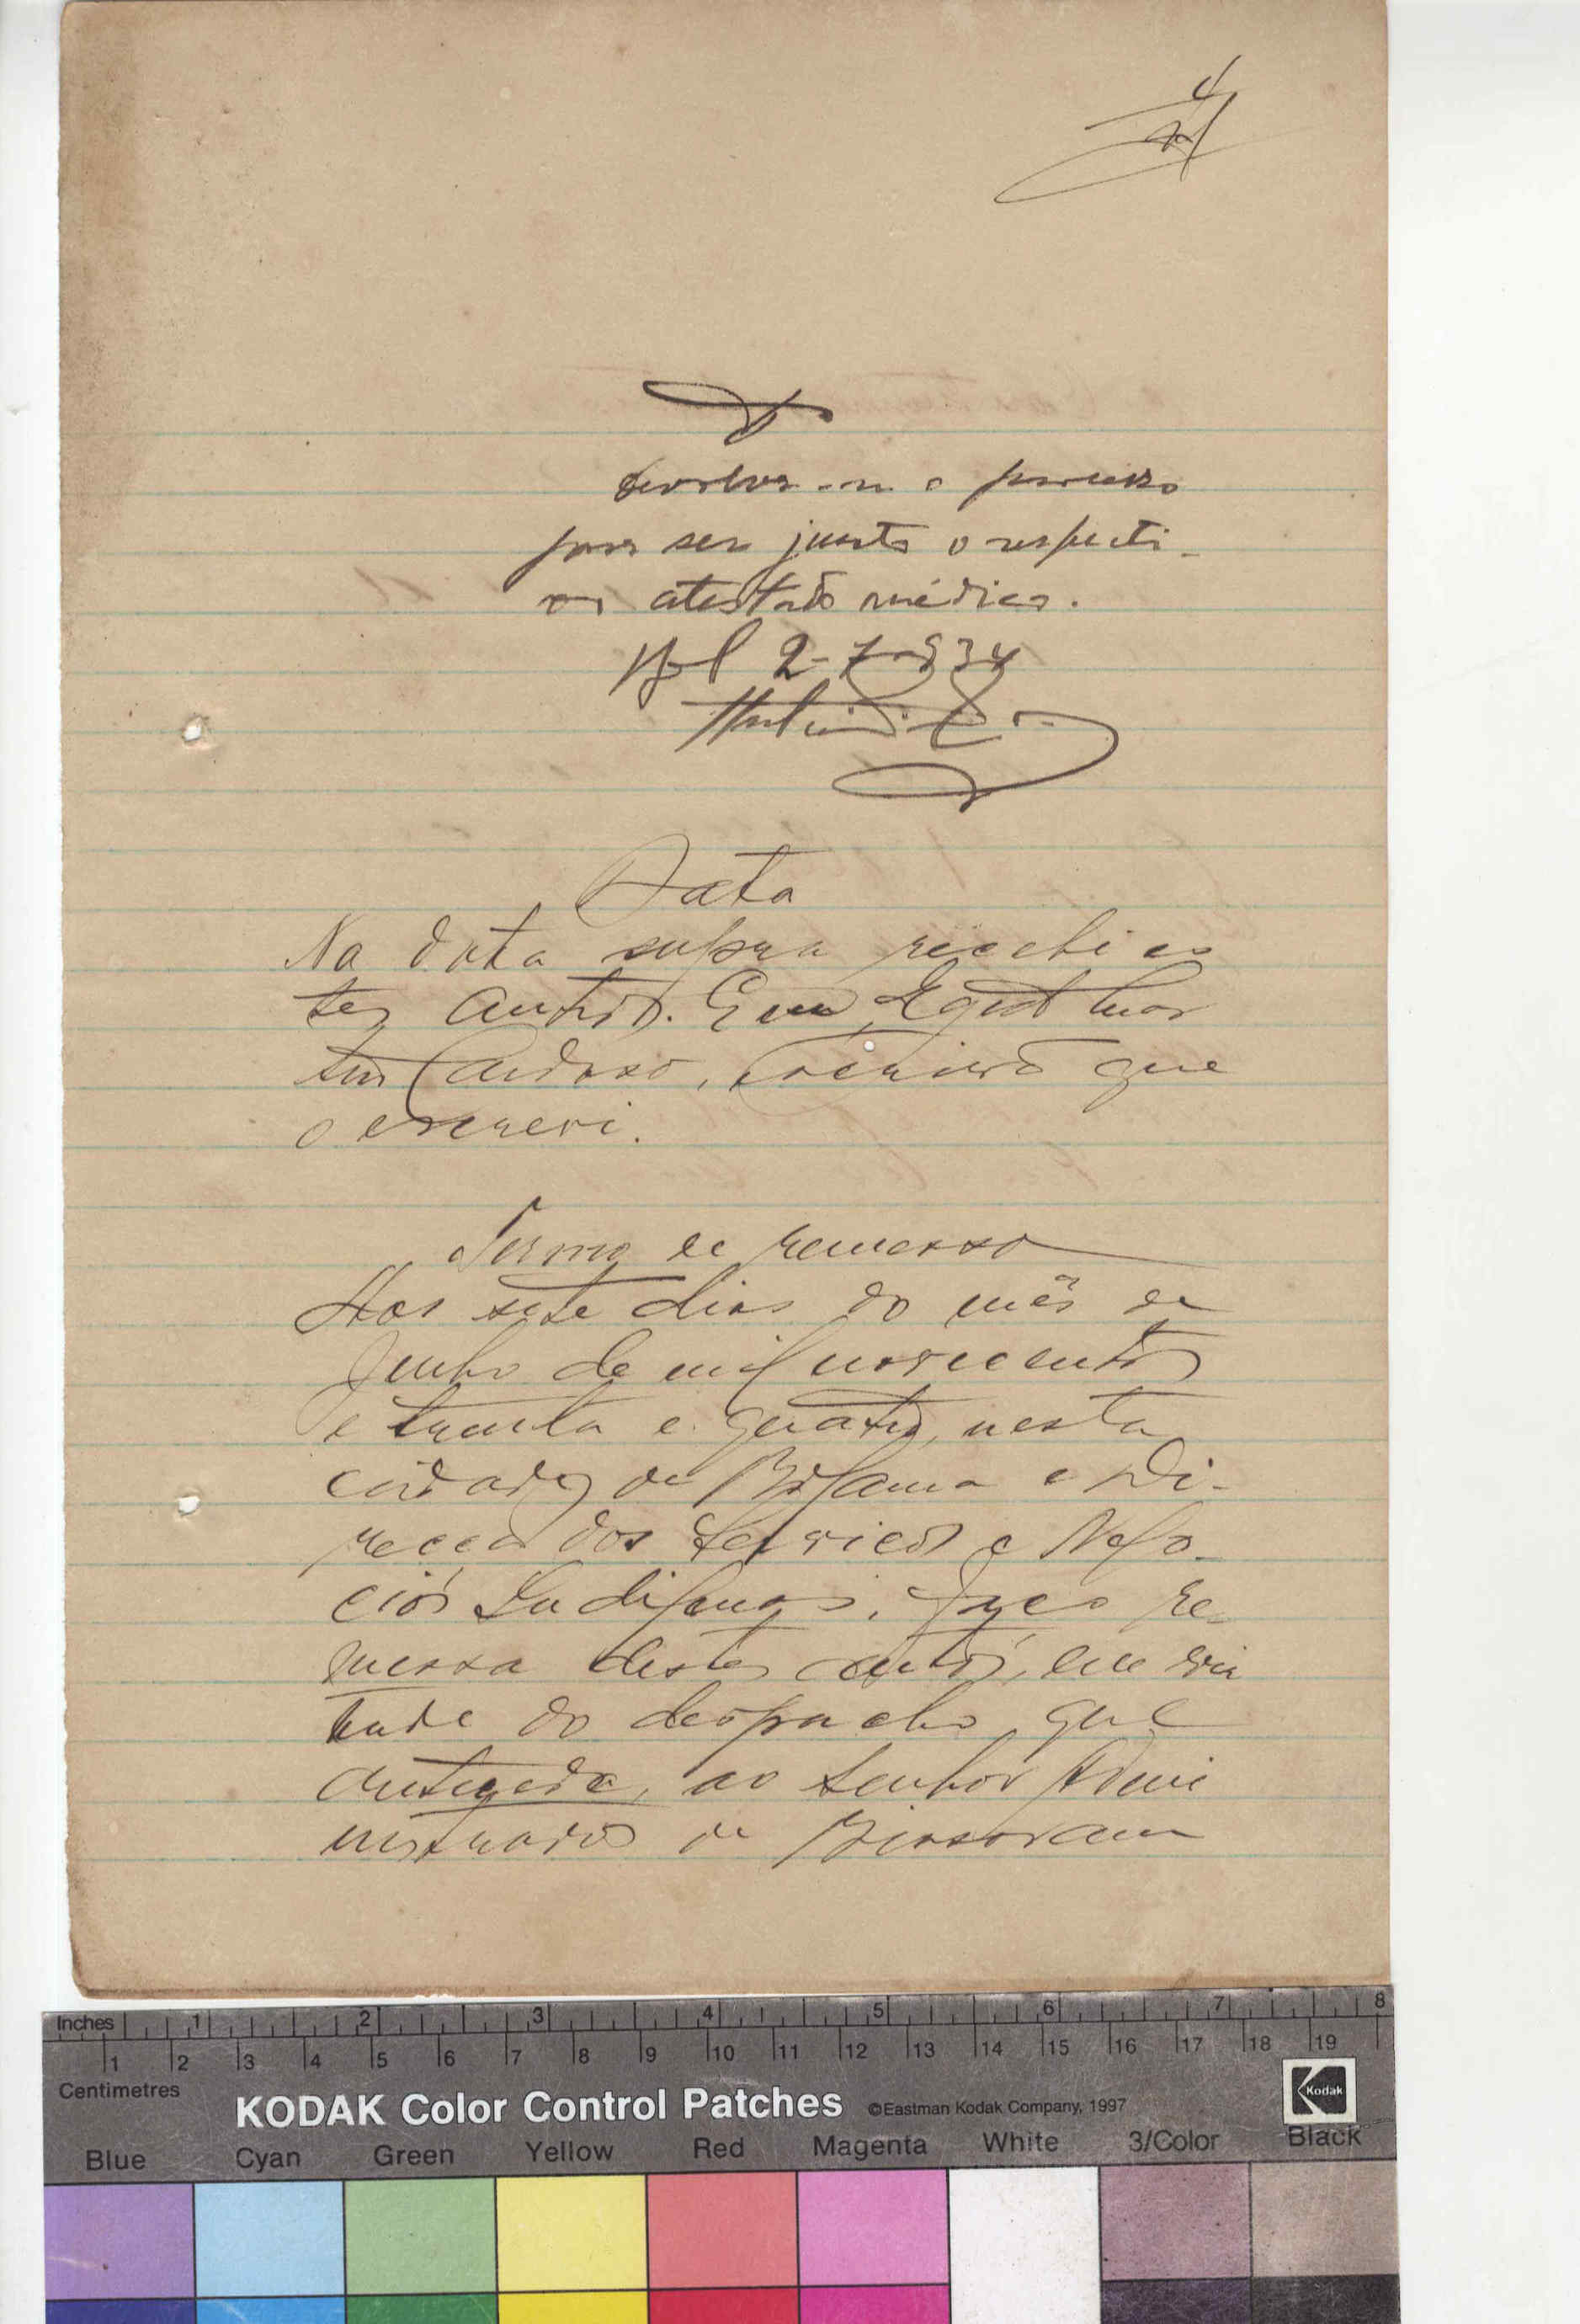 4
D
devolva-se o processo
para ser junto o respecti-
vo atestado médico.
Bol 2-7-934
Data
Na data supra recebi es
tes autos. E eu, Mar
tins Cardoso, escrivão que
o escrevi.
Termo de remessa
Aos sete dias do mês de
Junho de mil novecentos
e trinta e quatro, nesta
cidade de Bolama e Di-
recção dos Serviços e Negó-
cios Indigenas, faço re-
messa destes autos, em vir
tude do despacho que
antecede, ao Senhor Admi
nistrador de Bissoram
Inches 1 2 3 4 5 6 7 8
1 2 3 4 5 6 7 8 9 10 11 12 13 14 15 16 17 18 19
Centimetres
KODAK Color Control Patches ©Eastman Kodak Company, 1997 Kodak
Blue Cyan Green Yellow Red Magenta White 3/Color Black